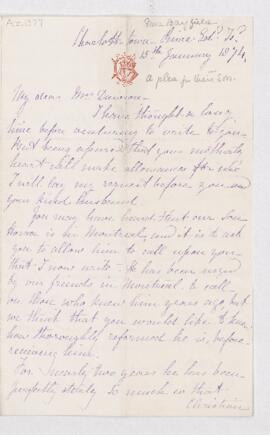 A-I.1977
Mrs Bayfield
Charlotte Town - Prince Ed. Is.
15th January 1874.
a plea for their son.
My dear Mrs Dawson -
I have thought a long
time before venturing to write to you
But being assured that your motherly
heart will make allowances for me
I will lay my request before you and
your kind husband.
You may have heard that our Son
Horace is in Montreal, and it is to ask
you to allow him to call upon you
that I now write - He has been urged
by our friends in Montreal to call
on those who knew him years ago, but
we think that you would like to know
how thoroughly reformed he is, before
receiving him.
For twenty two years he has been
perfectly steady so much so that
Christian